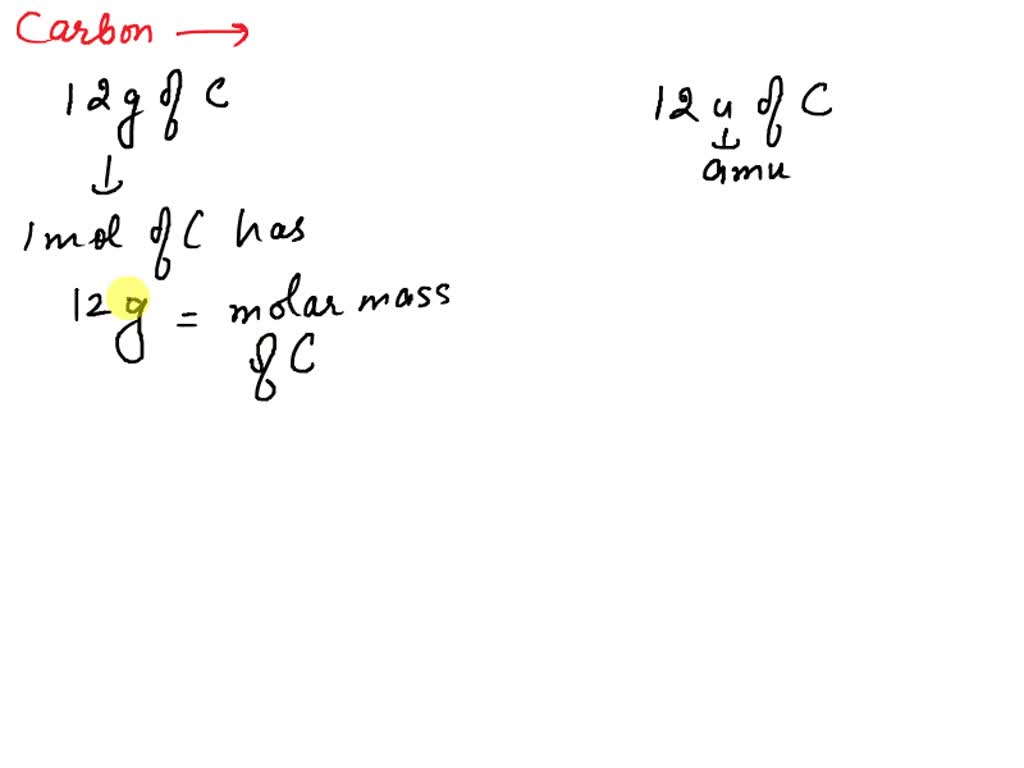 Carbon →
12g of C
↓
1 mol of C has
12g = molar mass
of C
12 u of C
↓
amu